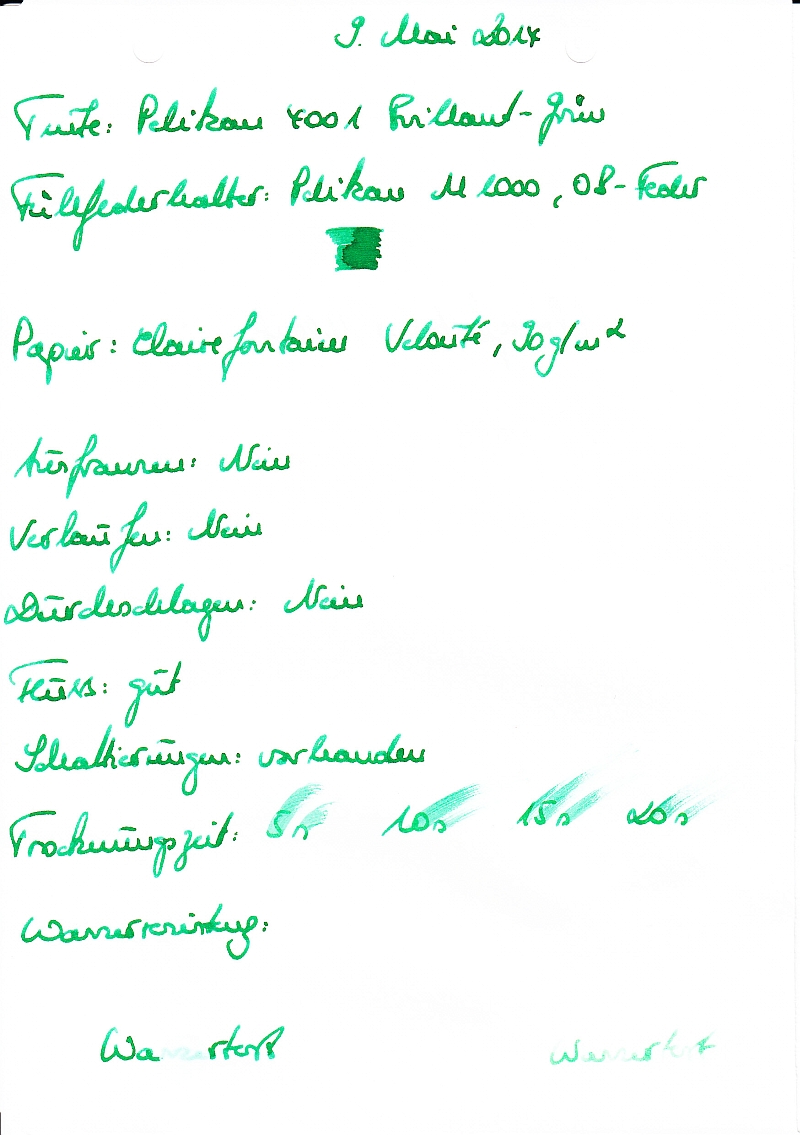 9. Mai 2014
Tinte: Pelikan 4001 Brillant-Grün
Füllfederhalter: Pelikan M 1000, OB-Feder
Papier: Clairefontaine Velouté, 90 g/m²
Ausfransen: Nein
Verlaufen: Nein
Durchschlagen: Nein
Fluss: gut
Schattierungen: vorhanden
Trocknungszeit: 5s 10s 15s 20s
Wasserwirkung:
Wassertest Wassertest